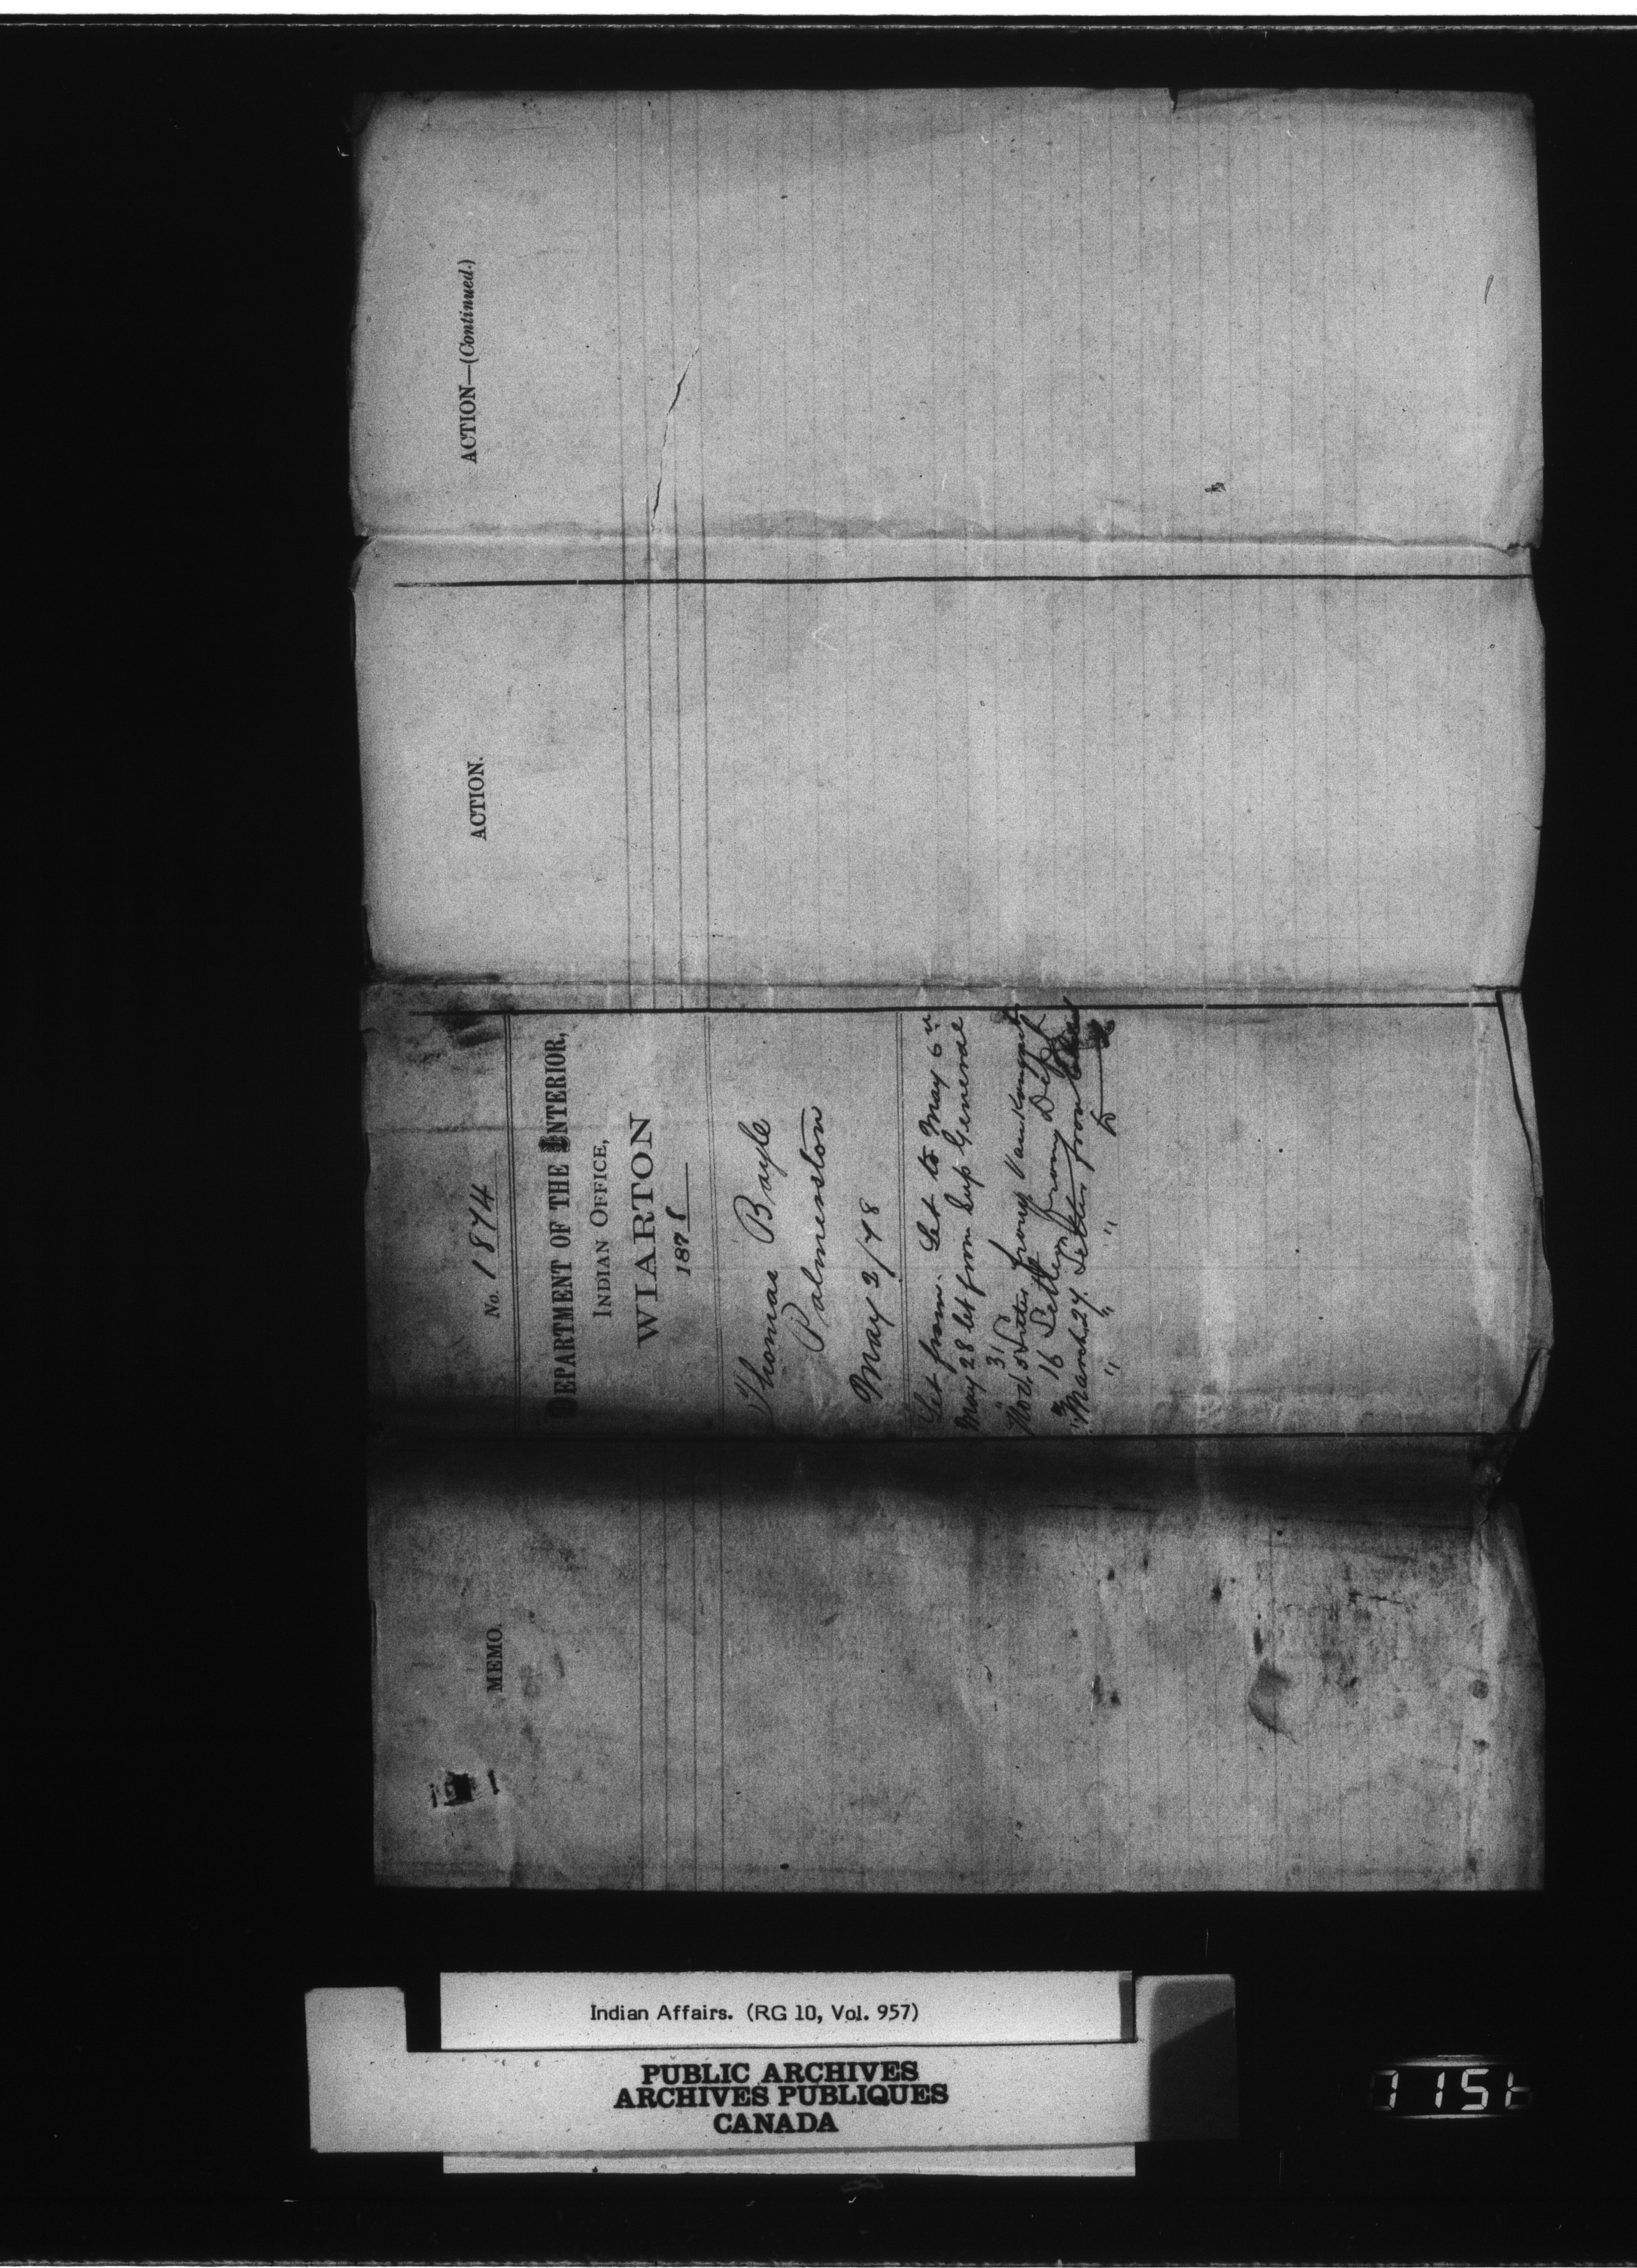 MEMO.
No. 1874
DEPARTMENT OF THE INTERIOR,
INDIAN OFFICE,
WIARTON
1878
Thomas Bayle
Palmerston
May 2/78
Let from. Let to May 6th
May 28 let from Sup General
" 31
Nod. 5 Letter from Vankoughnet
" 16 Letter from Dept
March 27. Letter from
" " "
ACTION.
ACTION—(Continued.)
Indian Affairs. (RG 10, Vol. 957)
PUBLIC ARCHIVES
ARCHIVES PUBLIQUES
CANADA